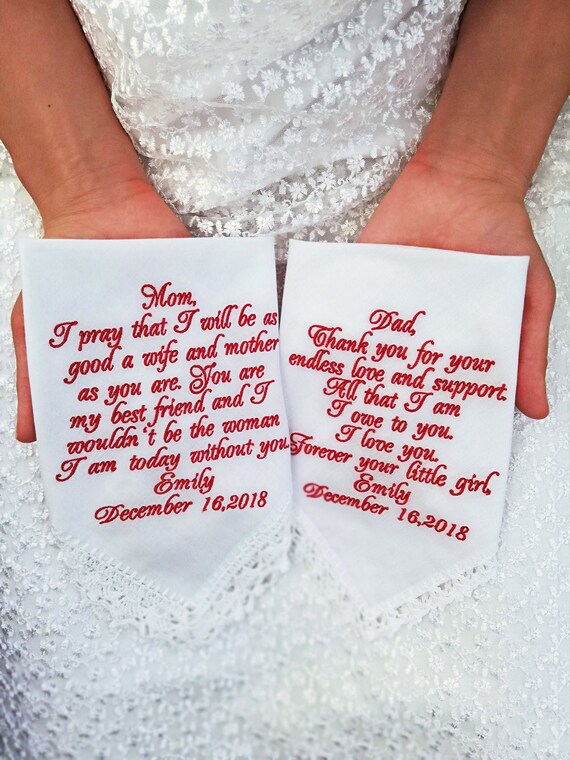 Mom,
I pray that I will be as
good a wife and mother
as you are. You are
my best friend and I
wouldn't be the woman
I am today without you.
Emily
December 16,2018
Dad,
Thank you for your
endless love and support.
All that I am
I owe to you.
I love you.
Forever your little girl,
Emily
December 16,2018